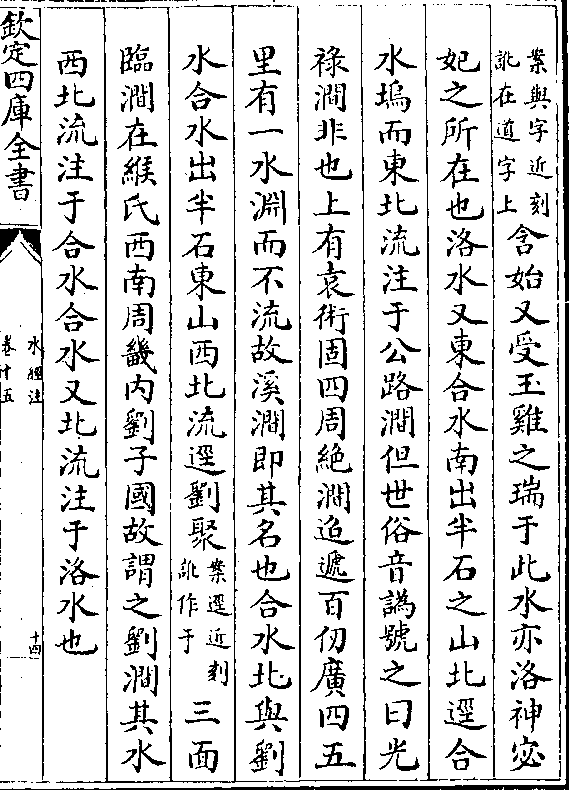 案與字近刻
訛在道字上
含始又受玉雞之瑞于此水亦洛神宓
妃之所在也洛水又東合水南出半石之山北逕合
水塢而東北流注于公路澗但世俗音譌號之曰光
祿澗非也上有袁術固四周絶澗迢遞百仞廣四五
里有一水淵而不流故溪澗即其名也合水北與劉
水合水出半石東山西北流逕劉聚
案逕近刻
訛作于
三面
臨澗在緱氏西南周畿内劉子國故謂之劉澗其水
西北流注于合水合水又北流注于洛水也
欽定四庫全書
水經注
卷十五
十四